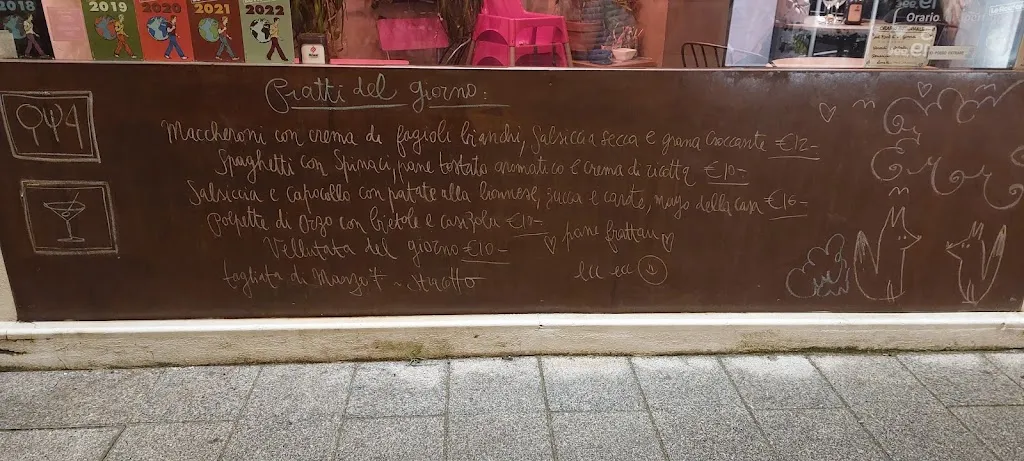 2018
2019
2020
2021
2022
Orario
Piatti del giorno:
Maccheroni con crema di fagioli bianchi, salsiccia secca e grana croccante €12-
Spaghetti con spinaci, pane tostato aromatico e crema di ricotta €10-
Salsiccia e capocollo con patate alla lionnese, zucca e carote, mayo della casa €16-
Polpette di orzo con bietole e €10-
Vellutata del giorno €10- pane frattau
tagliata di Manzo ecc ecc